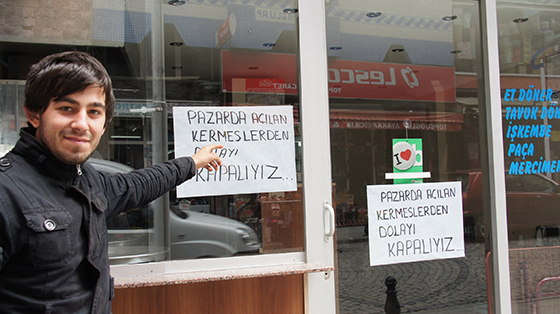 PAZARDA AÇILAN
KERMESLERDEN
DOLAYI
KAPALIYIZ...
Lescon
I
PAZARDA AÇILAN
KERMESLERDEN
DOLAYI
KAPALIYIZ...
ET DÖNER
TAVUK DÖN
İŞKEMBE
PAÇA
MERCİMEK